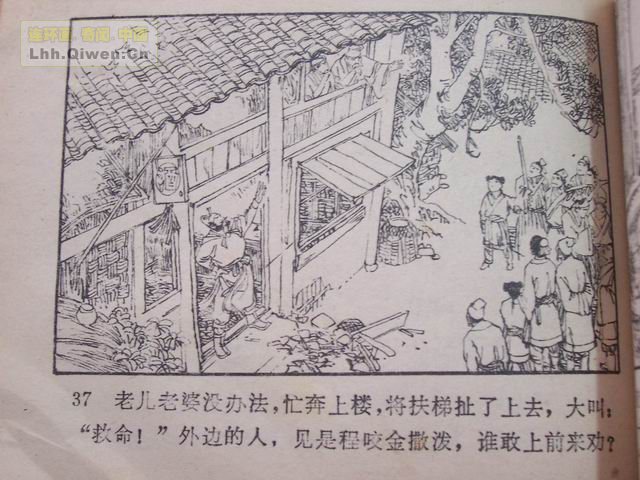 连环画·奇闻·中国
Lhh.Qiwen.Cn
37 老儿老婆没办法,忙奔上楼,将扶梯扯了上去,大叫:
“救命!”外边的人,见是程咬金撒泼,谁敢上前来劝?